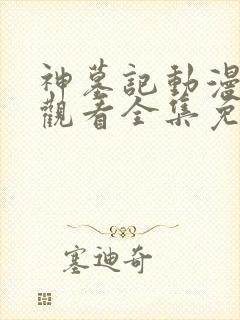 神墓記動漫
觀看全集免
塞迪奇